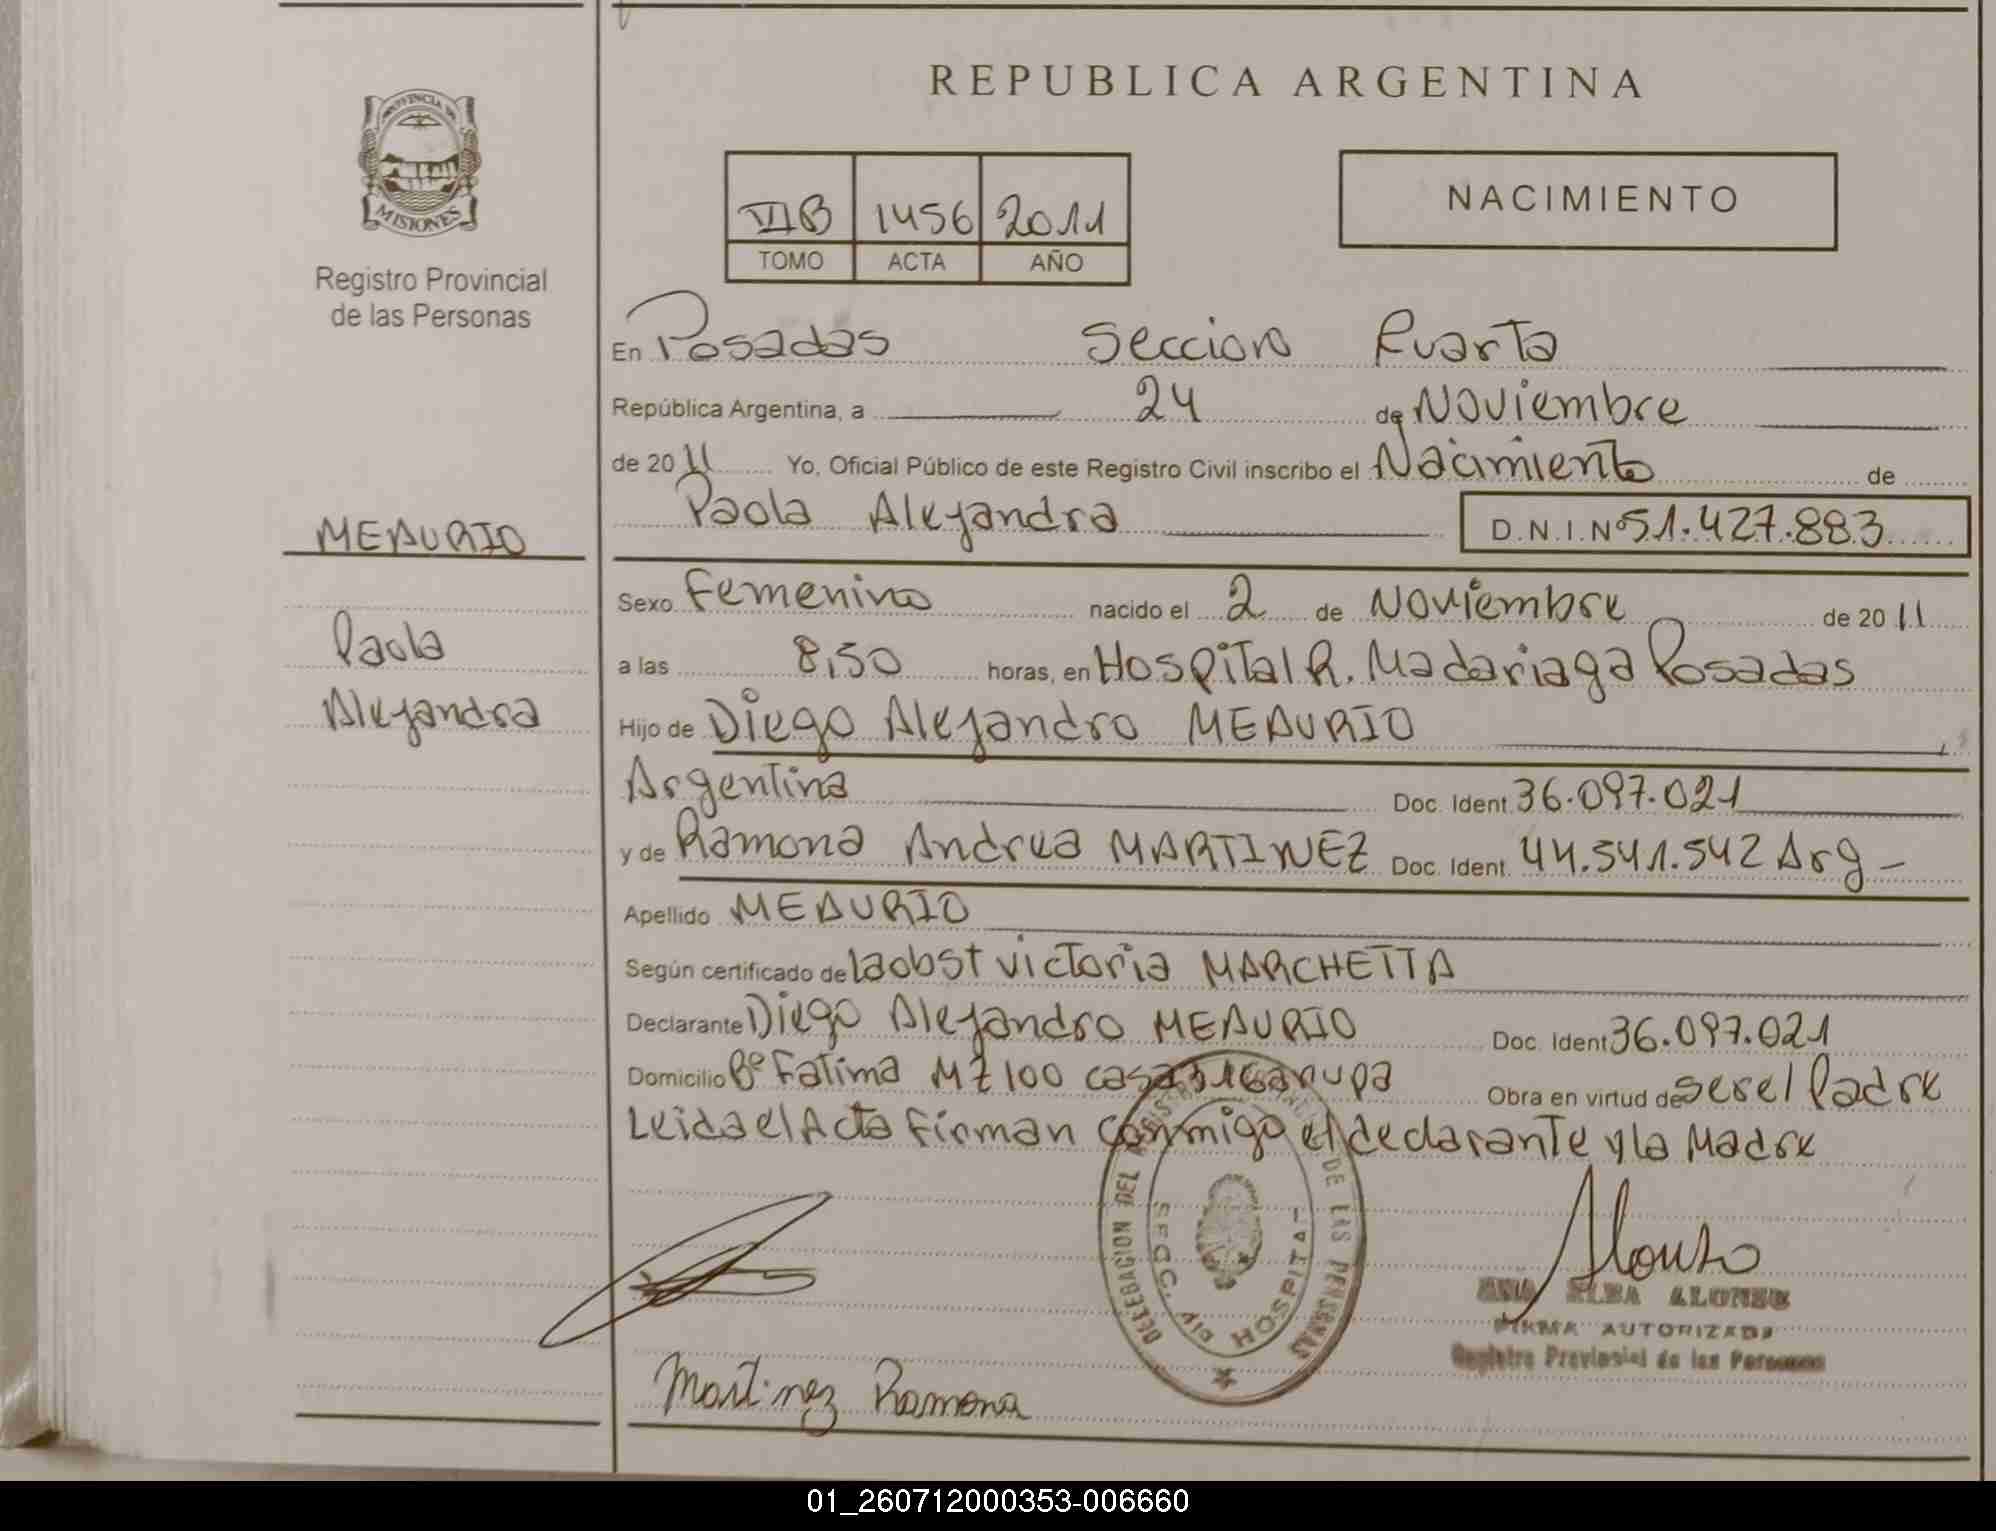 REPUBLICA ARGENTINA
PROVINCIA DE
MISIONES
Registro Provincial
de las Personas
VIB 1456 2011
TOMO ACTA AÑO
NACIMIENTO
En Posadas Seccion Cuarta
República Argentina, a 24 de Noviembre
de 2011 Yo, Oficial Público de este Registro Civil inscribo el Nacimiento de
Paola Alejandra D.N.I.Nº 51.427.883
MEAURIO
Paola
Alejandra
Sexo Femenino nacido el 2 de Noviembre de 2011
a las 8,50 horas, en Hospital R. Madariaga Posadas
Hijo de Diego Alejandro MEAURIO
Argentina Doc. Ident. 36.097.021
y de Ramona Andrea MARTINEZ Doc. Ident. 44.541.542 Arg
Apellido MEAURIO
Según certificado de la obst victoria MARCHETTA
Declarante Diego Alejandro MEAURIO Doc. Ident 36.097.021
Domicilio Bº Fatima MZ 100 casa Garupa Obra en virtud de ser el Padre
Leida el Acta Firman conmigo el declarante y la Madre
DELEGACION DEL REGISTRO DE LAS PERSONAS
SECC. HOSPITAL
Alonso
ANA ELBA ALONSO
FIRMA AUTORIZADA
Registro Provincial de las Personas
Martinez Ramona
01_260712000353-006660